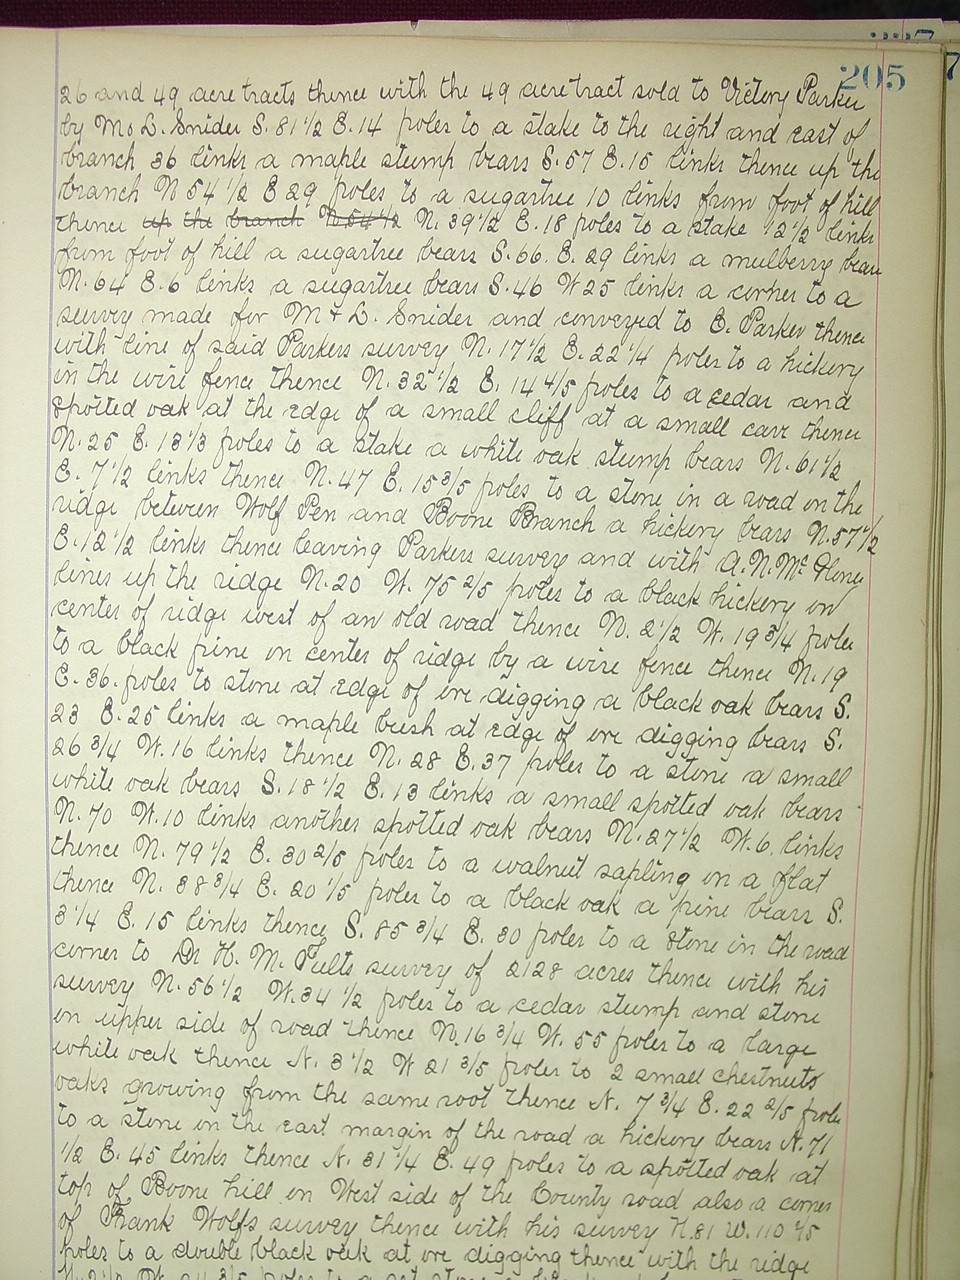 205
26 and 49 acre tracts thence with the 49 acre tract sold to Victory Parker
by M & L. Snider S. 81 1/2 E. 14 poles to a stake to the right and east of
branch 36 links a maple stump bears S. 57 E. 15 links thence up the
branch N 54 1/2 E 29 poles to a sugartree 10 links from foot of hill
thence up the branch N. 54 1/2 N. 39 1/2 E. 18 poles to a stake 12 1/2 links
from foot of hill a sugartree bears S. 66. E. 29 links a mulberry bears
N. 64 E. 6 links a sugartree bears S. 46 W 25 links a corner to a
survey made for M & L. Snider and conveyed to E. Parker thence
with line of said Parkers survey N. 17 1/2 E. 22 1/4 poles to a hickery
in the wire fence thence N. 32 1/2 E. 14 4/5 poles to a cedar and
spotted oak at the edge of a small cliff at a small cave thence
N. 25 E. 13 1/3 poles to a stake a white oak stump bears N. 61 1/2
E. 7 1/2 links thence N. 47 E. 15 3/5 poles to a stone in a road on the
ridge between Wolf Pen and Boone Branch a hickery bears N. 57 1/2
E. 12 1/2 links thence leaving Parkers survey and with A. N. Mc
lines up the ridge N. 20 W. 75 2/5 poles to a black hickery on
center of ridge west of an old road thence N. 2 1/2 W. 19 3/4 poles
to a black pine on center of ridge by a wire fence thence N. 19
E. 36. poles to stone at edge of ore digging a black oak bears S.
23 E. 25 links a maple bush at edge of ore digging bears S.
26 3/4 W. 16 links thence N. 28 E. 37 poles to a stone a small
white oak bears S. 18 1/2 E. 13 links a small spotted oak bears
N. 70 W. 10 links another spotted oak bears N. 27 1/2 W. 6. links
thence N. 79 1/2 E. 30 2/5 poles to a walnut sapling on a flat
thence N. 38 3/4 E. 20 1/5 poles to a black oak a pine bears S.
3 1/4 E. 15 links thence S. 85 3/4 E. 30 poles to a stone in the road
corner to Dr H. M. Fults survey of 2128 acres thence with his
survey N. 56 1/2 W. 34 1/2 poles to a cedar stump and stone
on upper side of road thence N. 16 3/4 W. 55 poles to a large
white oak thence N. 3 1/2 W 21 3/5 poles to 2 small chestnuts
oaks growing from the same root thence N. 7 3/4 E. 22 2/5 poles
to a stone in the east margin of the road a hickery bears N. 71
1/2 E. 45 links thence N. 31 1/4 E. 49 poles to a spotted oak at
top of Boone hill on West side of the County road also a corner
of Frank Wolfs survey thence with his survey N. 81 W. 110 4/5
poles to a double black oak at ore digging thence with the ridge